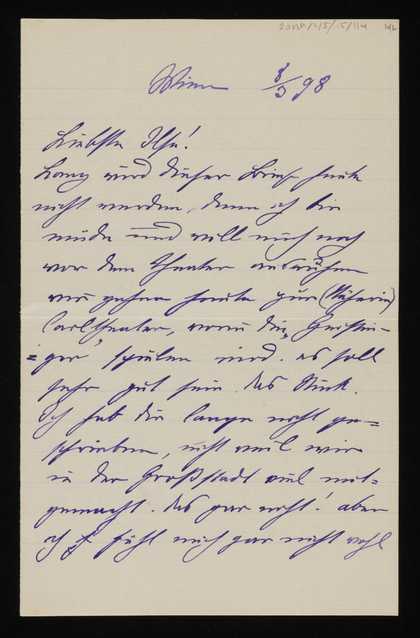 Wien 8/3 98
Liebste Ilse!
Lang wird dieser Brief heute
nicht werden, denn ich bin
müde und will mich noch
vor dem Theater ausruhen
wir gehen heute zur
Carltheater, wenn die
spielen wird. es soll
sehr gut sein das Stück.
Ich hab dir lange nicht ge=
schrieben, nicht weil wir
in der Großstadt viel mit=
gemacht. das gar nicht! aber
ich fühl mich gar nicht wohl